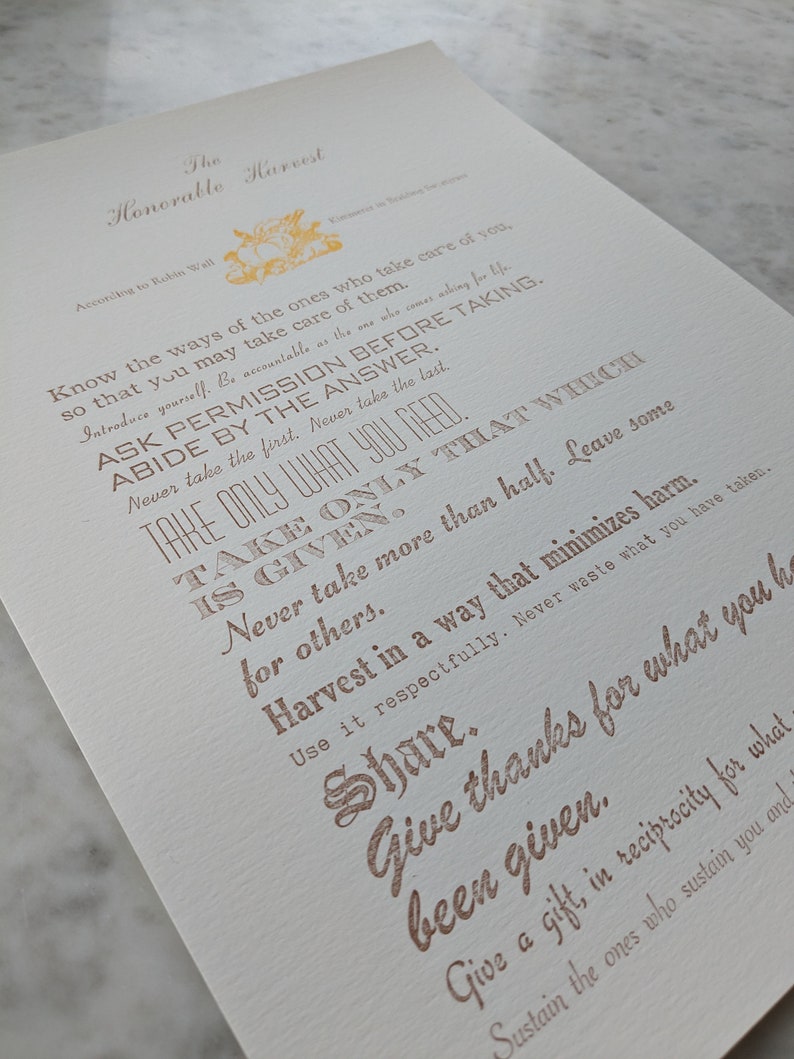 The
Honorable Harvest
According to Robin Wall Kimmerer in Braiding Sweetgrass
Know the ways of the ones who take care of you,
so that you may take care of them.
Introduce yourself. Be accountable as the one who comes asking for life.
ASK PERMISSION BEFORE TAKING.
ABIDE BY THE ANSWER.
Never take the first. Never take the last.
TAKE ONLY WHAT YOU NEED.
TAKE ONLY THAT WHICH
IS GIVEN.
Never take more than half. Leave some
for others.
Harvest in a way that minimizes harm.
Use it respectfully. Never waste what you have taken.
Share.
Give thanks for what you
been given.
Give a gift, in reciprocity for what
Sustain the ones who sustain you and